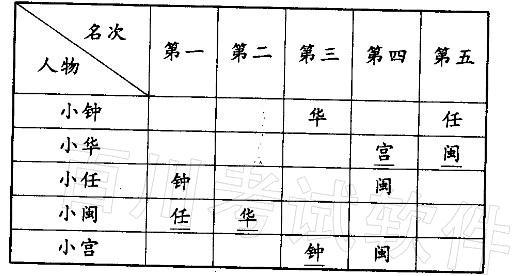 名次
人物
第一 第二 第三 第四 第五
小钟 华 任
小华 宫 闽
小任 钟 闽
小闽 任 华
小宫 钟 闽
百川考试软件